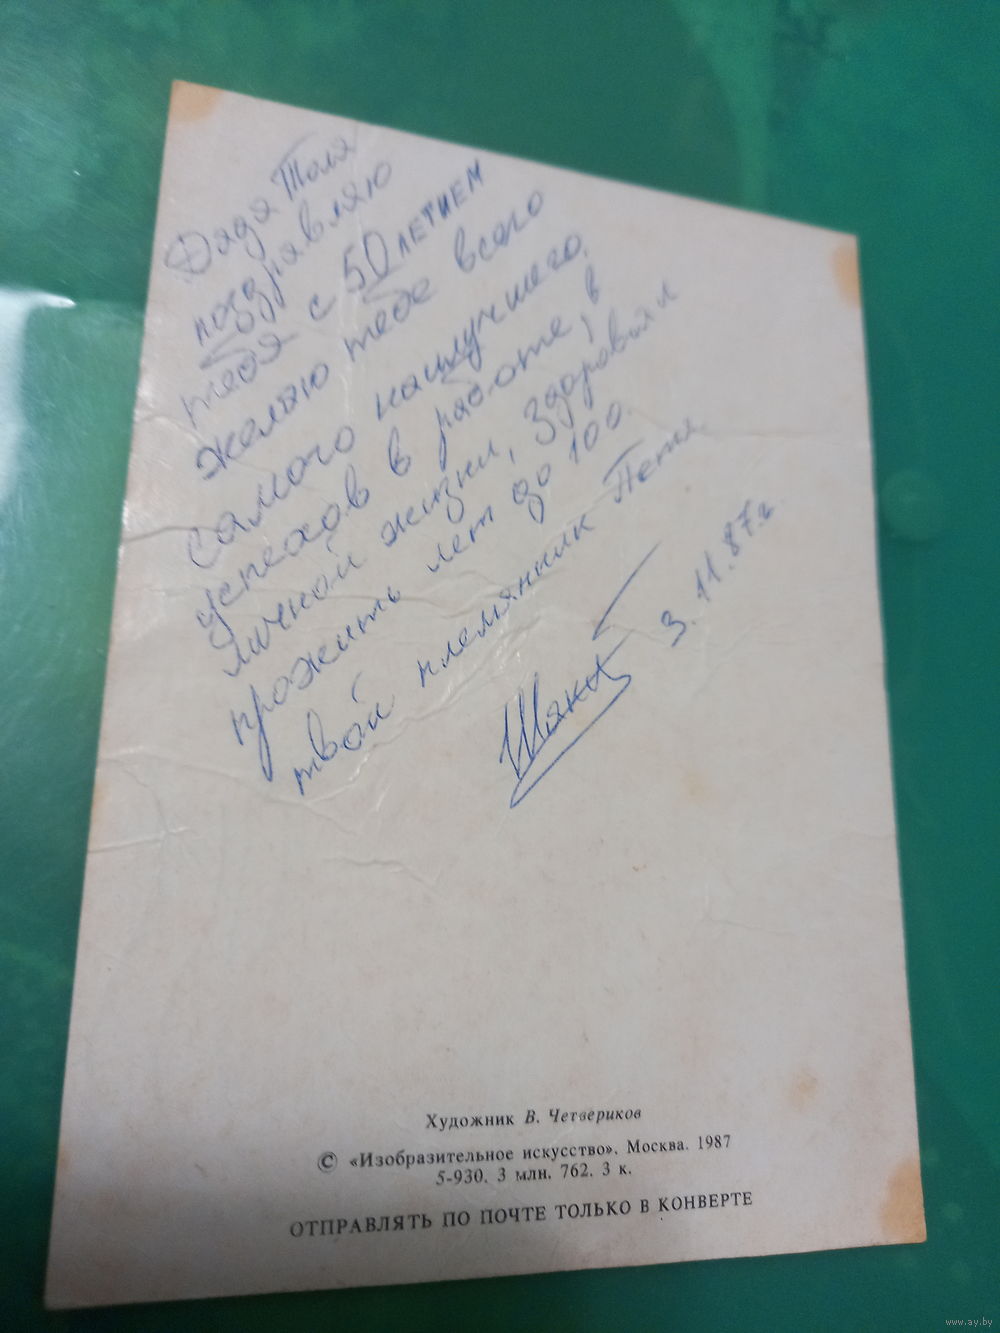 Дядя Толя
поздравляю
тебя с 50 ЛЕТИЕМ
желаю тебе всего
самого наилучшего.
успехов в работе, в
личной жизни, здоровья и
прожить лет до 100.
твой племянник Петя.
3.11.87г.
Художник В. Четвериков
© «Изобразительное искусство». Москва. 1987
5-930. 3 млн. 762. 3 к.
ОТПРАВЛЯТЬ ПО ПОЧТЕ ТОЛЬКО В КОНВЕРТЕ
www.ay.by